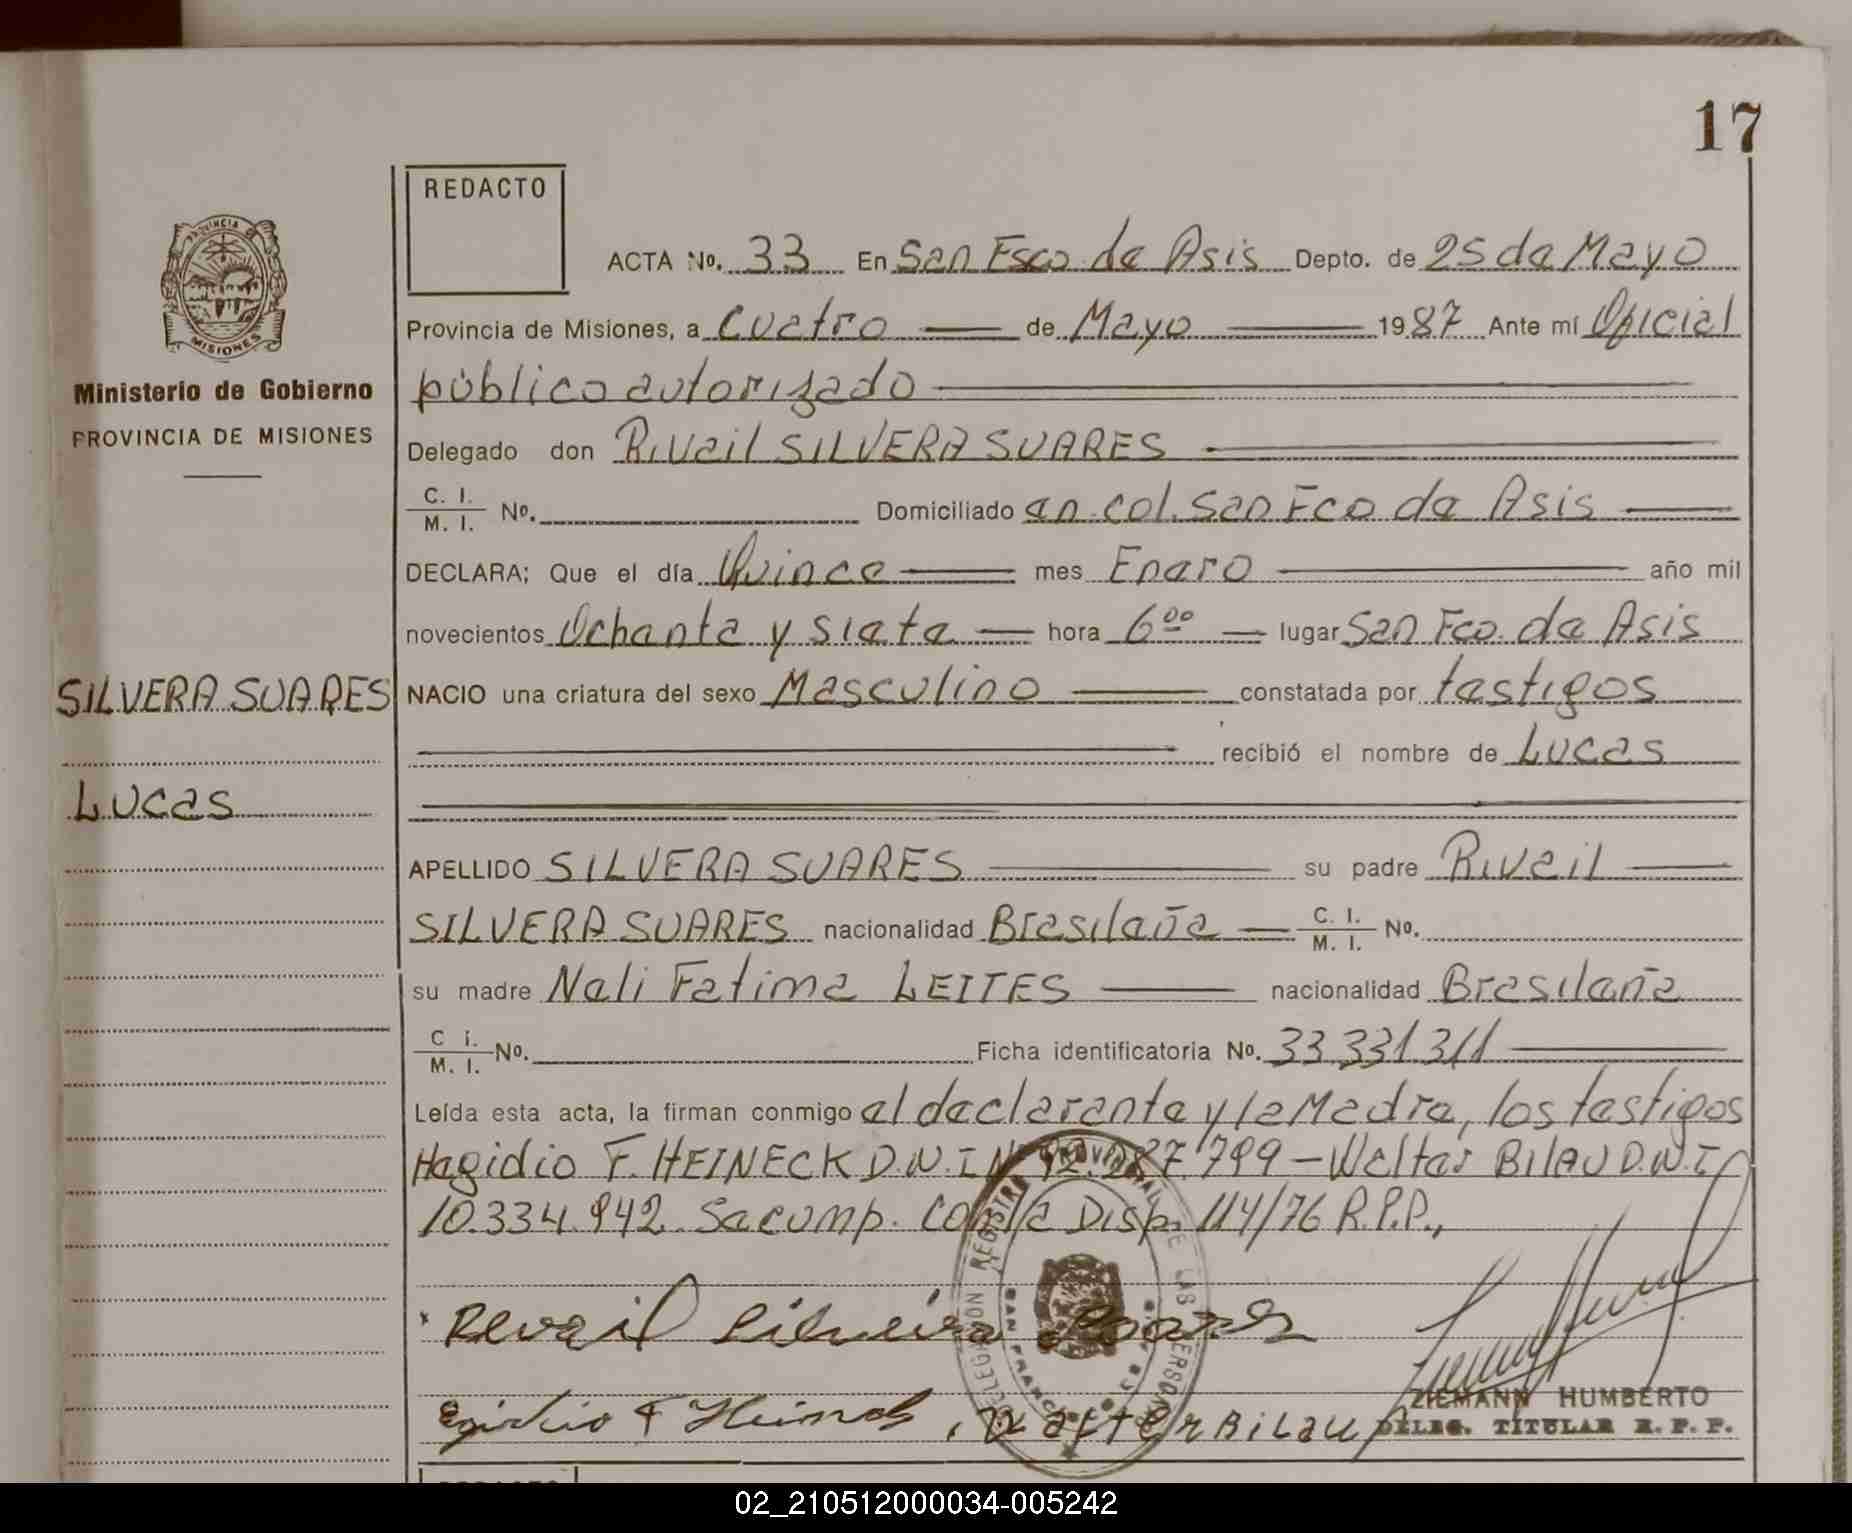 17
REDACTO
ACTA No. 33 En San Fsco de Asis Depto. de 25 de Mayo
PROVINCIA DE
MISIONES
Provincia de Misiones, a Cuatro de Mayo 1987 Ante mí Oficial
Ministerio de Gobierno
público autorizado
PROVINCIA DE MISIONES
Delegado don Rivail SILVERA SUARES
C. I.
M. I. No. Domiciliado en col. San Fco de Asis
DECLARA; Que el día Quince mes Enero año mil
novecientos Ochenta y siete hora 6 00 lugar San Fco. de Asis
SILVERA SUARES
NACIO una criatura del sexo Masculino constatada por testigos
recibió el nombre de Lucas
Lucas
APELLIDO SILVERA SUARES su padre Rivail
SILVERA SUARES nacionalidad Brasileña C. I. M. I. No.
su madre Neli Fatima LEITES nacionalidad Brasileña
C. I. M. I. No. Ficha identificatoria No. 33 331 311
Leída esta acta, la firman conmigo el declarante y la Madre, los testigos
Hegidio F. HEINECK D.N.I N° 92.287.799 - Welter BILAU D.N.I
10.334.942 Se cump. Con la Disp. 114/76 R.P.P.,
DELEGACION REGISTRO PROVINCIAL DE LAS PERSONAS
SAN FRANCISCO
Revail Silveira Soares
Egidio F Heineck, Walter BiLau
ZIEMANN HUMBERTO
DELEG. TITULAR R. P. P.
02_210512000034-005242